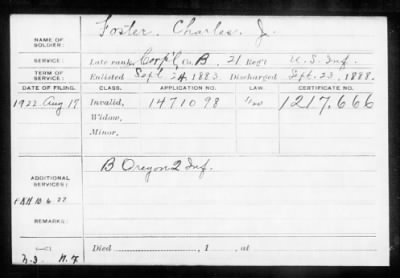 NAME OF SOLDIER: Foster, Charles J.
SERVICE: Late rank Corp'l, Co. B, 21 Reg't U.S. Inf.
TERM OF SERVICE: Enlisted Sept. 24, 1883, Discharged Sept. 23, 1888.
DATE OF FILING. CLASS. APPLICATION NO. LAW. CERTIFICATE NO.
1922 Aug 17 Invalid, 1471098 1217,666
Widow,
Minor,
ADDITIONAL SERVICES: B Oregon 2 Inf.
REMARKS:
Died , 1 , at